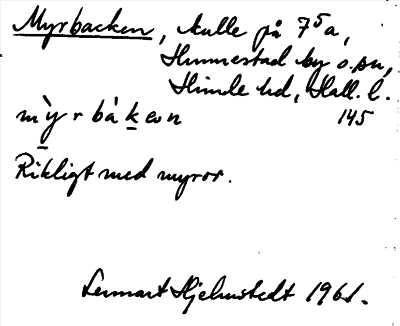 Myrbacken, kulle på 7⁵a,
Hunnestad by o. sn,
Himle hd, Hall. l.
145
m̀yrbákən
Rikligt med myror.
Lennart Hjelmstedt 1961.